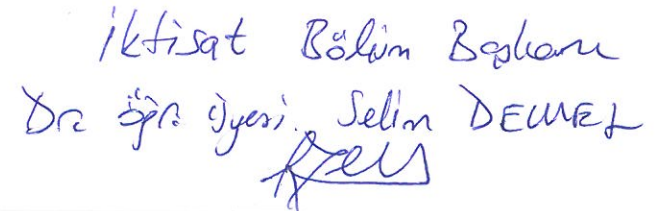 İktisat Bölüm Başkanı
Dr. Öğr. Üyesi. Selim